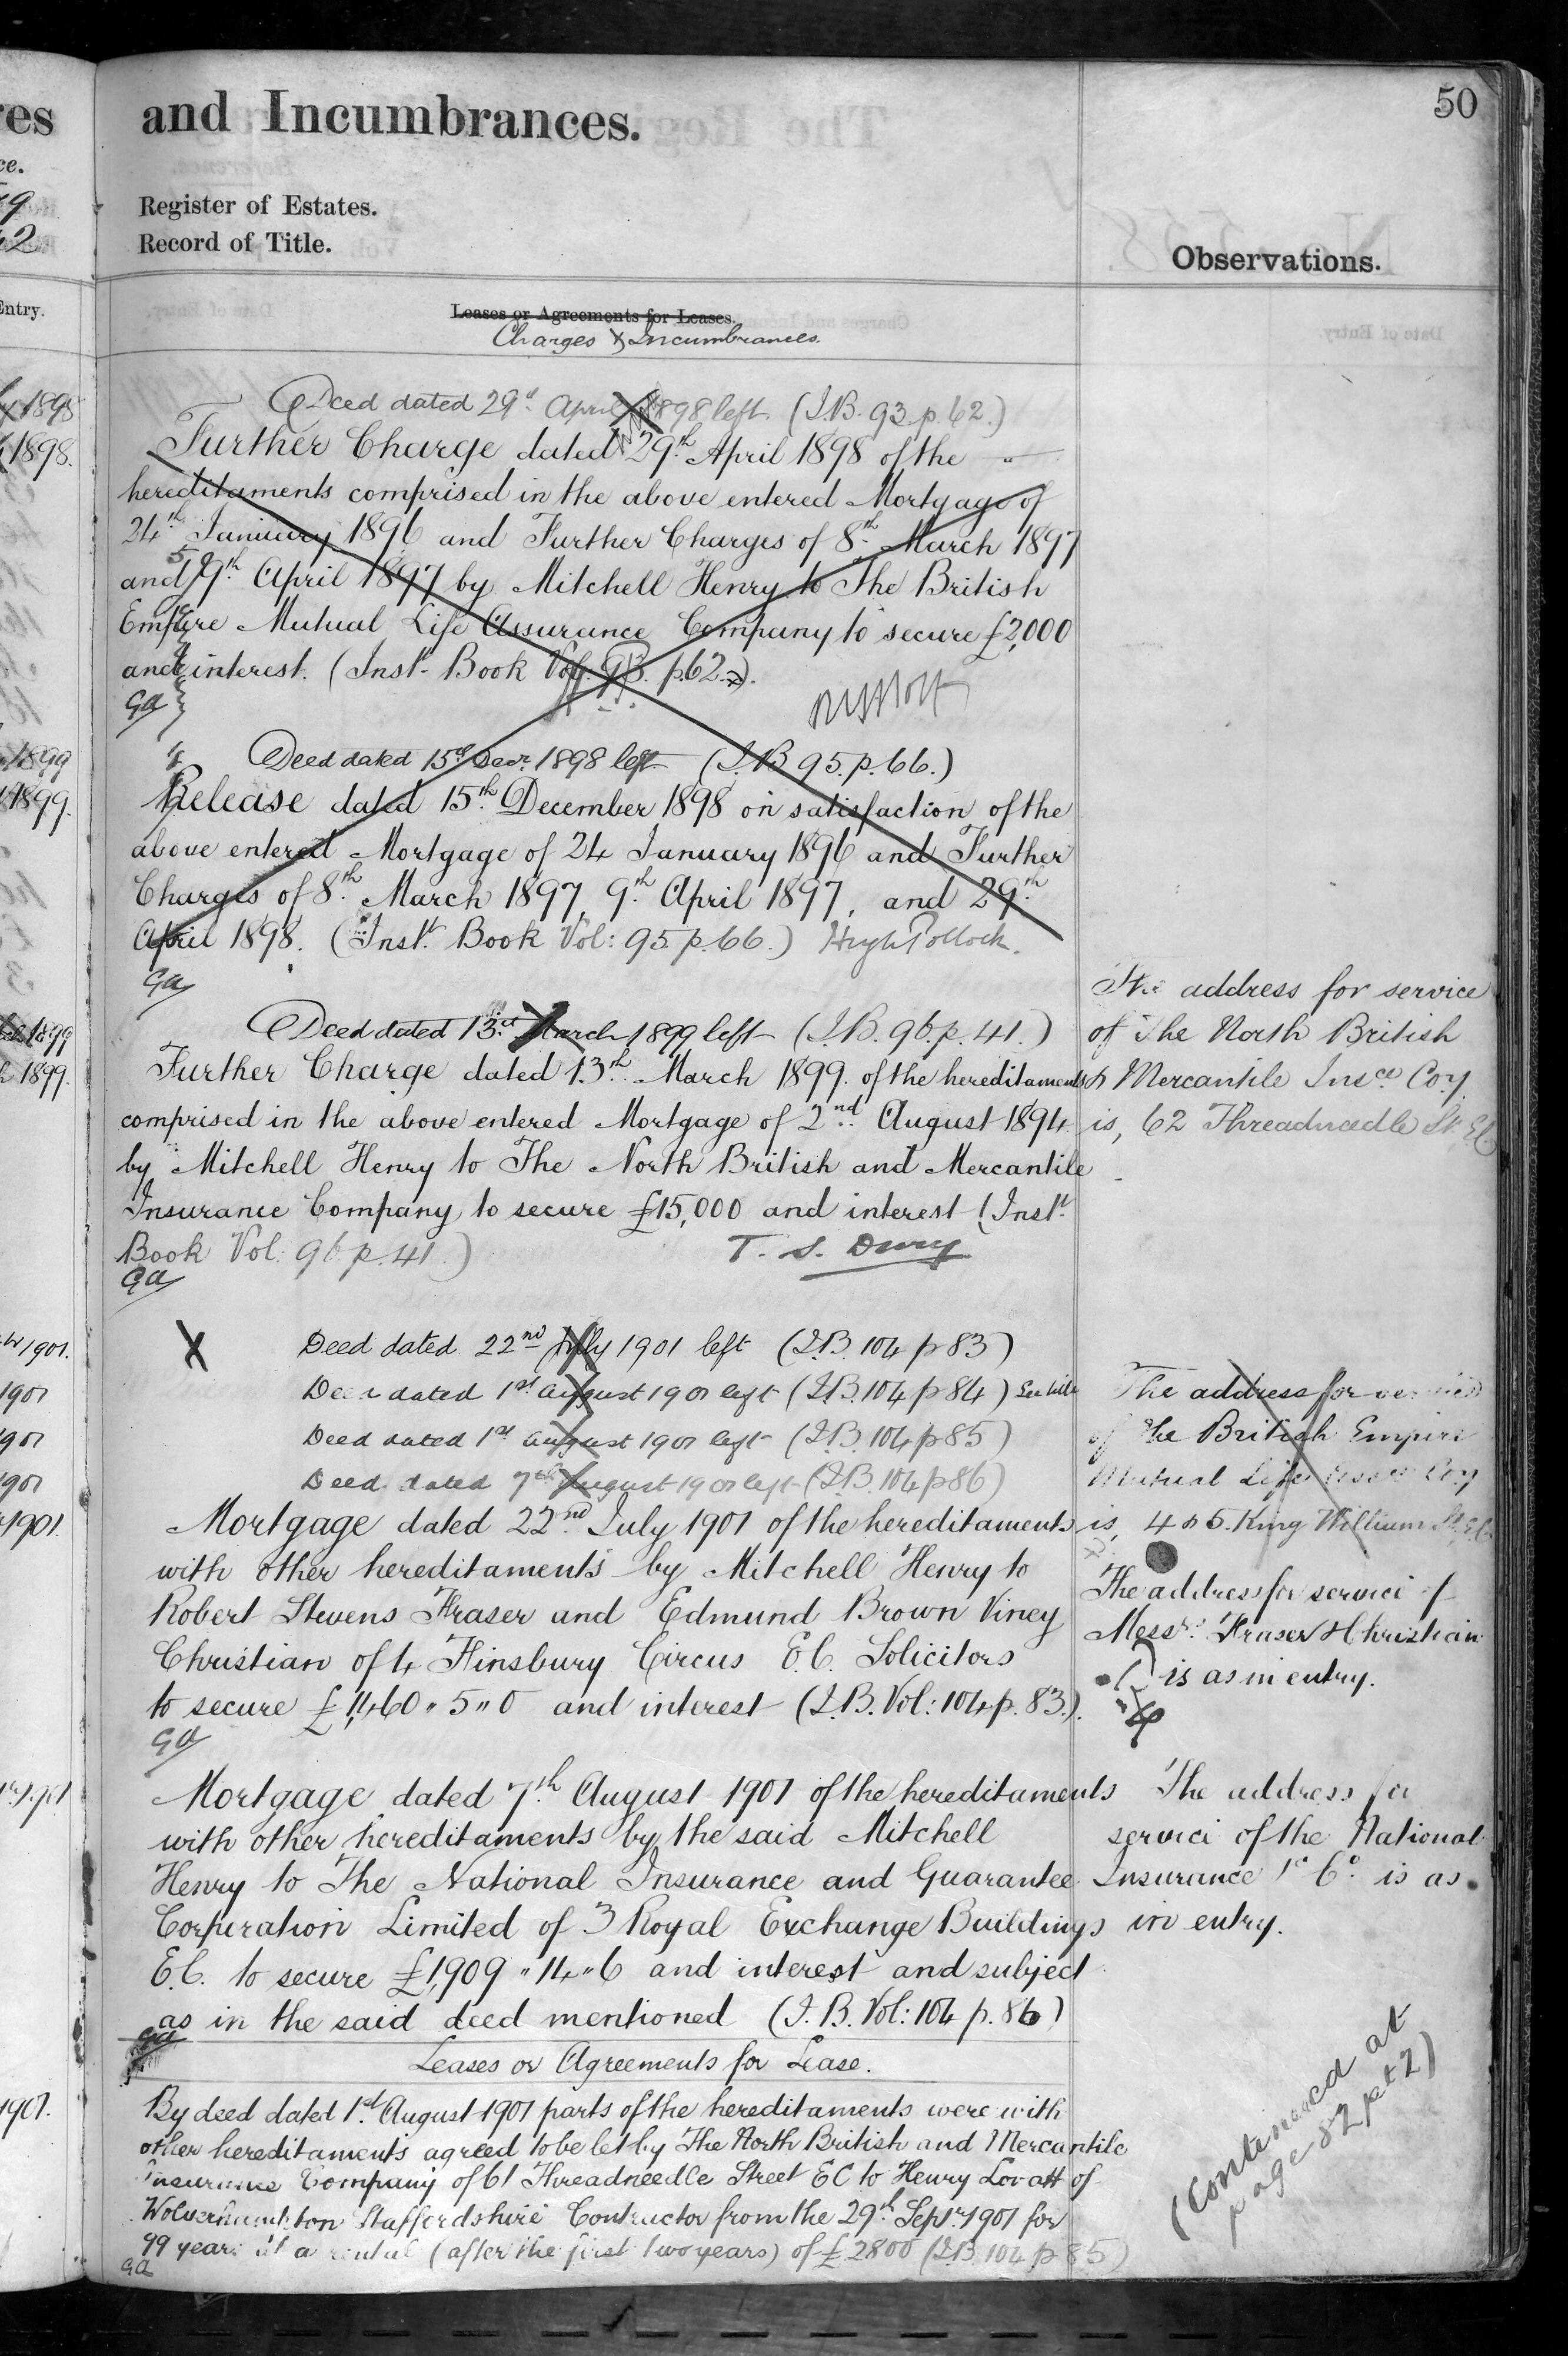 res
and Incumbrances.
50
ce.
Register of Estates.
Record of Title.
Observations.
Entry.
Leases or Agreements for Leases.
Charges & Incumbrances.
Deed dated 29th April 1898 left (I.B. 93 p. 62.)
1898
Further Charge dated 29th April 1898 of the
1898.
hereditaments comprised in the above entered Mortgage of
24th January 1896 and Further Charges of 8th March 1897
and 9th April 1897 by Mitchell Henry to The British
Empire Mutual Life Assurance Company to secure £2,000
and interest. (Inst. Book Vol. 93. p. 62.)
Ga
Deed dated 15th Decr. 1898 left (I.B 95. p. 66.)
1899
Release dated 15th December 1898 on satisfaction of the
1899.
above entered Mortgage of 24 January 1896 and Further
Charges of 8th March 1897, 9th April 1897, and 29th
April 1898. (Inst. Book Vol: 95 p. 66.) Hugh Pollock.
Ga
Deed dated 13th March 1899 left (I.B. 96. p. 41.)
1899
Further Charge dated 13th March 1899. of the hereditaments
1899.
comprised in the above entered Mortgage of 2nd August 1894
by Mitchell Henry to The North British and Mercantile
Insurance Company to secure £15,000 and interest (Inst.
Book Vol: 96 p. 41.)
Ga
The address for service
of The North British
& Mercantile Insce Coy
is, 62 Threadneedle St. E.C.
X Deed dated 22nd July 1901 left (I.B. 104 p 83)
1901.
Deed dated 1st August 1901 left (I.B. 104 p 84)
1901
Deed dated 1st August 1901 left (I.B. 104 p 85)
1901
Deed dated 7th August 1901 left (I.B. 104 p 86)
1901
Mortgage dated 22nd July 1901 of the hereditaments
1901.
with other hereditaments by Mitchell Henry to
Robert Stevens Fraser and Edmund Brown Viney
Christian of 4 Finsbury Circus E.C. Solicitors
to secure £1,460 " 5 " 0 and interest (I.B. Vol: 104 p. 83.)
Ga
The address for service
of the British Empire
Mutual Life Assce Coy
is, 4 & 5 King William St. E.C.
The address for service of
Messrs. Fraser & Christian
is as in entry.
Mortgage dated 7th August 1901 of the hereditaments
with other hereditaments by the said Mitchell
Henry to The National Insurance and Guarantee
Corporation Limited of 3 Royal Exchange Buildings
E.C. to secure £1,909 " 14 " 6 and interest and subject
as in the said deed mentioned (I.B. Vol: 104 p. 86)
Ga
The address for
service of the National
Insurance &c Co. is as
in entry.
Leases or Agreements for Lease.
1901.
By deed dated 1st August 1901 parts of the hereditaments were with
other hereditaments agreed to be let by The North British and Mercantile
Insurance Company of 61 Threadneedle Street EC to Henry Lovatt of
Wolverhampton Staffordshire Contractor from the 29th Septr 1901 for
99 years at a rental (after the first two years) of £2800 (I.B. 104 p 85)
Ga
(Continued at
page 82 pt 2)